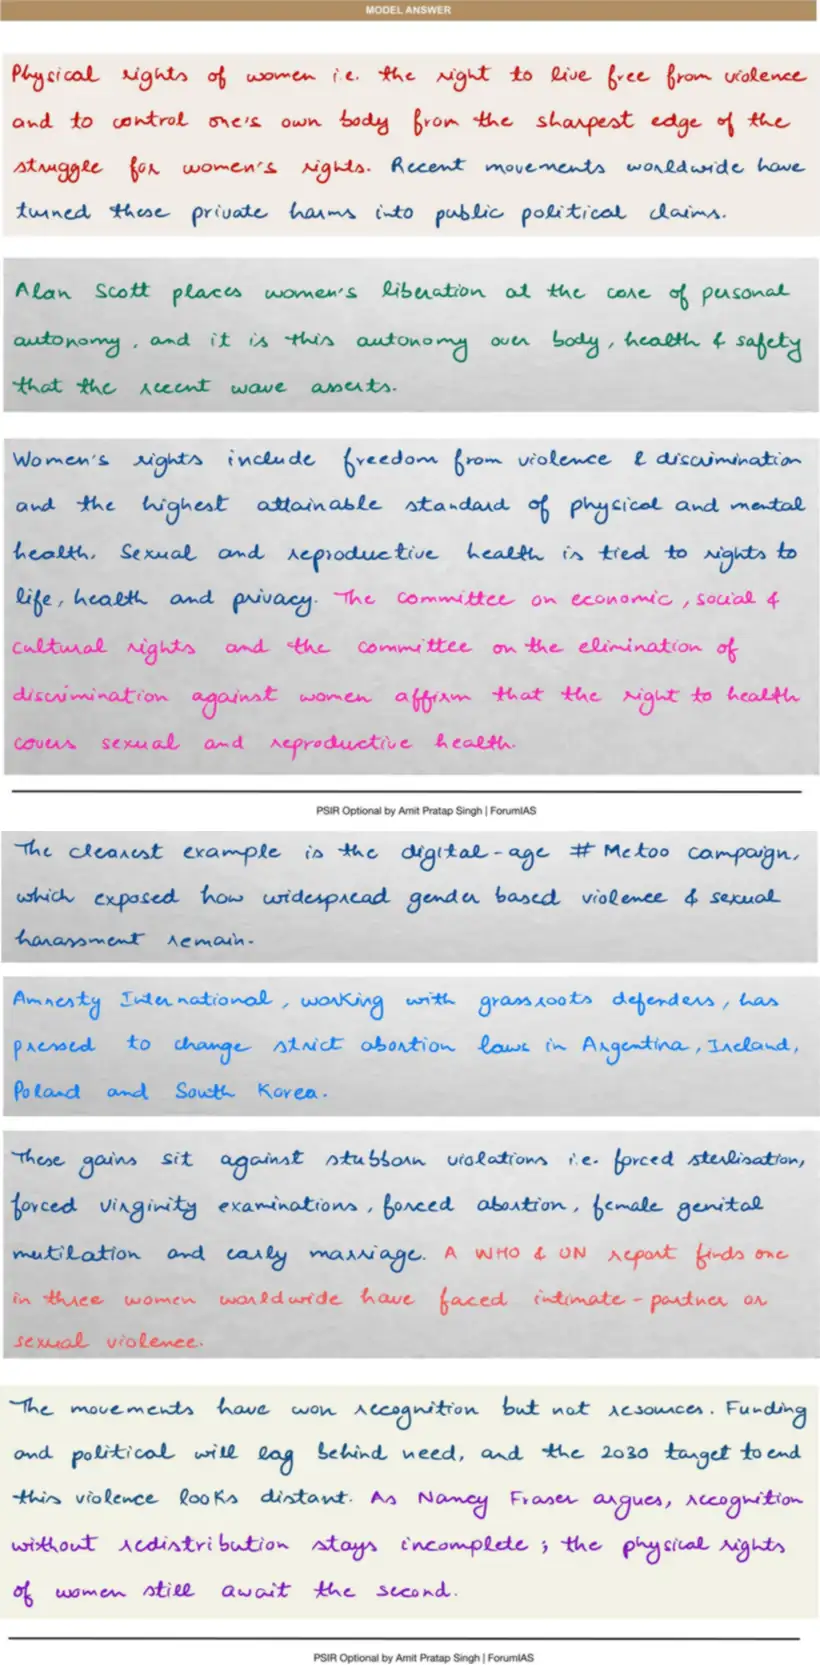 MODEL ANSWER
Physical rights of women i.e. the right to live free from violence
and to control one's own body from the sharpest edge of the
struggle for women's rights. Recent movements worldwide have
turned these private harms into public political claims.
Alan Scott places women's liberation at the core of personal
autonomy, and it is this autonomy over body, health & safety
that the recent wave asserts.
Women's rights include freedom from violence & discrimination
and the highest attainable standard of physical and mental
health. Sexual and reproductive health is tied to rights to
life, health and privacy. The committee on economic, social &
cultural rights and the committee on the elimination of
discrimination against women affirm that the right to health
covers sexual and reproductive health.
PSIR Optional by Amit Pratap Singh | ForumIAS
The clearest example is the digital-age # Metoo campaign,
which exposed how widespread gender based violence & sexual
harassment remain.
Amnesty International, working with grassroots defenders, has
pressed to change strict abortion laws in Argentina, Ireland,
Poland and South Korea.
These gains sit against stubborn violations i.e. forced sterilisation,
forced virginity examinations, forced abortion, female genital
mutilation and early marriage. A WHO & UN report finds one
in three women worldwide have faced intimate-partner or
sexual violence.
The movements have won recognition but not resources. Funding
and political will lag behind need, and the 2030 target to end
this violence looks distant. As Nancy Fraser argues, recognition
without redistribution stays incomplete; the physical rights
of women still await the second.
PSIR Optional by Amit Pratap Singh | ForumIAS